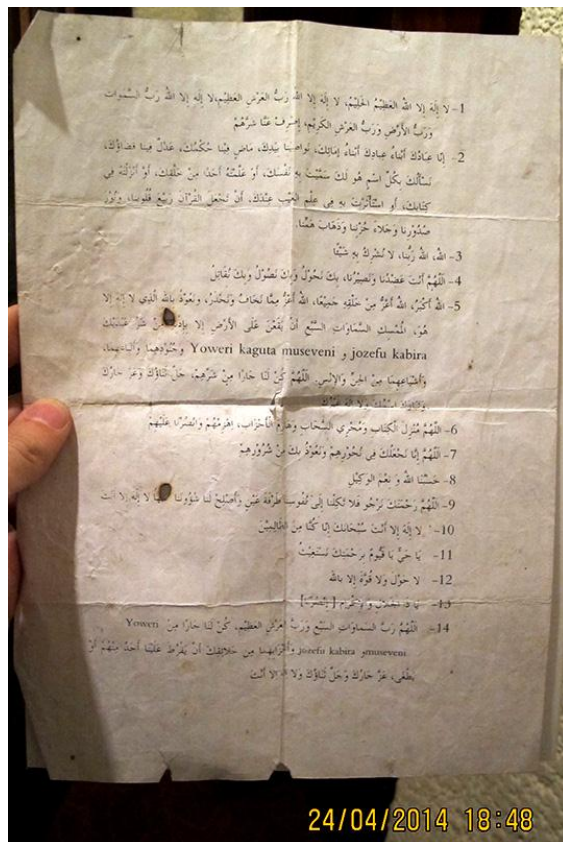 1- لا إِلَهَ إلا اللهُ العَظِيْمُ الحَلِيْمُ، لا إِلَهَ إلا اللهُ رَبُّ العَرْشِ العَظِيْمِ، لا إِلَهَ إلا اللهُ رَبُّ السَّمواتِ
وَرَبُّ الأَرْضِ وَرَبُّ العَرْشِ الكَرِيْمِ، إِصْرِفْ عَنَّا شَرَّهُمْ
2- إِنَّا عِبَادُكَ أَبْنَاءُ عِبادِكَ أَبْنَاءُ إِمَائِكَ، نَواصِينا بِيَدِكَ، مَاضٍ فِيْنا حُكْمُكَ، عَدْلٌ فِينا قَضاؤُكَ،
نَسْأَلُكَ بِكُلِّ اسْمٍ هُو لَكَ سَمَّيْتَ بِهِ نَفْسَكَ، أَوْ عَلَّمْتَهُ أَحَدًا مِنْ خَلْقِكَ، أَوْ أَنْزَلْتَهُ فِي
كِتَابِكَ، أَوِ اسْتَأْثَرْتَ بِهِ فِي عِلْمِ الغَيْبِ عِنْدَكَ، أَنْ تَجْعَلَ القُرْآنَ رَبِيْعَ قُلُوبِنا، وَنُوْرَ
صُدُوْرِنا وَجَلاءَ حُزْنِنا وَذَهَابَ هَمِّنا.
3- اللهُ، اللهُ رَبُّنا، لا نُشْرِكُ بِهِ شَيْئًا
4- اللَّهُمَّ أَنْتَ عَضُدُنا وَنَصِيْرُنا، بِكَ نَحُوْلُ وَبِكَ نَصُوْلُ وَبِكَ نُقَاتِلُ
5- اللهُ أَكْبَرُ، اللهُ أَعَزُّ مِنْ خَلْقِهِ جَمِيْعًا، اللهُ أَعَزُّ مِمَّا نَخَافُ وَنَحْذَرُ، وَنَعُوْذُ بِاللهِ الَّذِي لا إِلهَ إلا
هُوَ، المُمْسِكِ السَّمَاوَاتِ السَّبْعِ أَنْ يَقَعْنَ عَلَى الأَرْضِ إلا مِنْ شَرِّ عَبْدَيْكَ
Yoweri kaguta museveni و jozefu kabira وَجُنُوْدِهِمَا وَأَتْبَاعِهِمَا،
وَأَشْيَاعِهِمَا مِنَ الجِنِّ وَالإِنْسِ. اللَّهُمَّ كُنْ لَنَا جَارًا مِنْ شَرِّهِمْ، جَلَّ ثَنَاؤُكَ وَعَزَّ جَارُكَ
اسْمُكَ وَلا إِلَهَ غَيْرُكَ
6- اللَّهُمَّ مُنْزِلَ الكِتَابِ وَمُجْرِيَ السَّحَابِ وَهَازِمَ الأَحْزَابِ، اِهْزِمْهُمْ وَانْصُرْنا عَلَيْهِمْ
7- اللَّهُمَّ إِنَّا نَجْعَلُكَ فِي نُحُوْرِهِمْ وَنَعُوْذُ بِكَ مِنْ شُرُوْرِهِمْ
8- حَسْبُنَا اللهُ وَ نِعْمَ الوَكِيْلُ
9- اللَّهُمَّ رَحْمَتَكَ نَرْجُو فَلا تَكِلْنا إِلَى نُفُوسِنا طَرْفَةَ عَيْنٍ وَأَصْلِحْ لَنا شُؤُوْنَنا لا إِلَهَ إلا أَنْتَ
10- لا إِلَهَ إلا أَنْتَ سُبْحَانَكَ إِنَّا كُنَّا مِنَ الظَّالِمِيْنَ
11- يَا حَيُّ يَا قَيُّومُ بِرَحْمَتِكَ نَسْتَغِيْثُ
12- لا حَوْلَ وَلا قُوَّةَ إلا بِاللهِ
13- يَا ذَا الجَلالِ وَالإِكْرَامِ [اُنْصُرْنَا]
14- اللَّهُمَّ رَبَّ السَّماوَاتِ السَّبْعِ وَرَبَّ العَرْشِ العَظِيْمِ، كُنْ لَنا جَارًا مِنْ Yoweri
museveni و jozefu kabira مِن خَلائِقِكَ أَنْ يَفْرُطَ عَلَيْنا أَحَدٌ مِنْهُمْ أَوْ
يَطْغَى، عَزَّ جَارُكَ وَجَلَّ ثَنَاؤُكَ وَلا إِلَهَ إلا أَنْتَ
24/04/2014 18:48